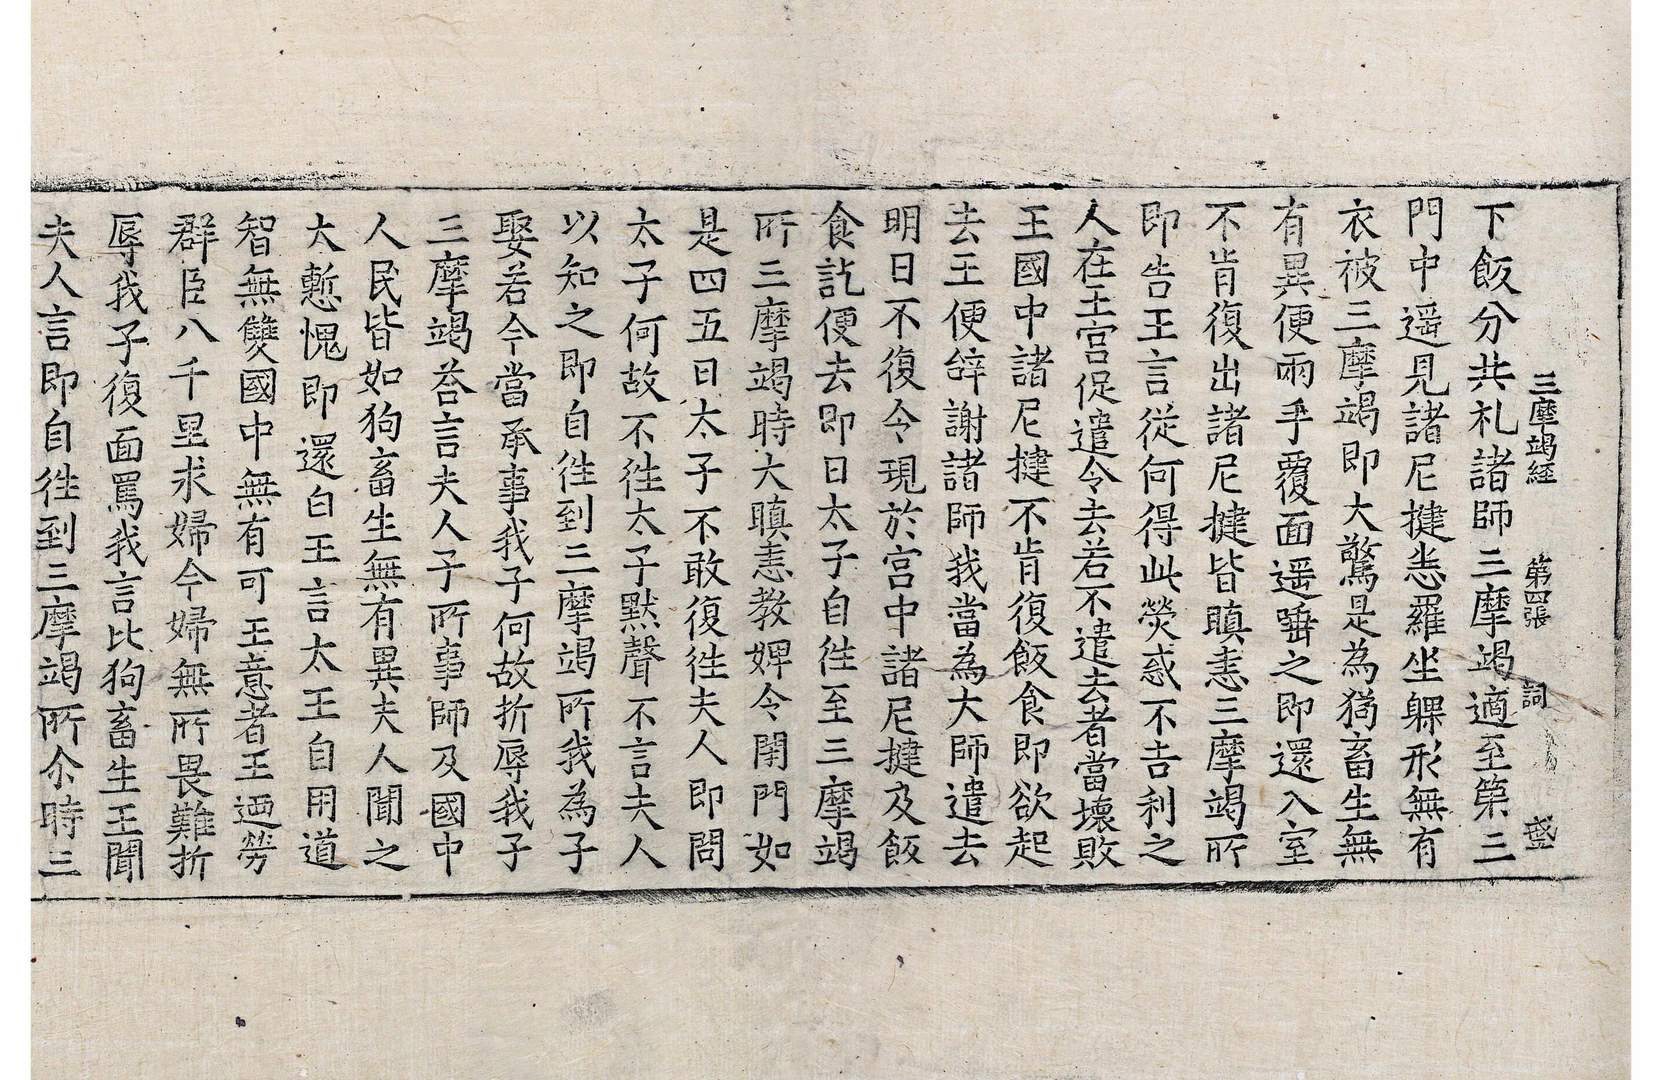 三摩竭經　第四張　詞　盛
下飯分共礼諸師三摩竭適至第三
門中遥見諸尼揵悉羅坐躶形無有
衣被三摩竭即大驚是為㺃畜生無
有異便兩手覆面遥唾之即還入室
不肯復出諸尼揵皆瞋恚三摩竭所
即告王言從何得此熒惑不吉利之
人在王宫促遣令去若不遣去者當壞敗
王國中諸尼揵不肯復飯食即欲起
去王便辝謝諸師我當為大師遣去
明日不復令現於宫中諸尼揵及飯
食訖便去即日太子自徃至三摩竭
所三摩竭時大瞋恚教婢令閇門如
是四五日太子不敢復徃夫人即問
太子何故不徃太子默聲不言夫人
以知之即自徃到三摩竭所我為子
娶若今當承事我子何故折辱我子
三摩竭荅言夫人子所事師及國中
人民皆如狗畜生無有異夫人聞之
大慙愧即還白王言太王自用道
智無雙國中無有可王意者王迺勞
群臣八千里求婦今婦無所畏難折
辱我子復面罵我言比狗畜生王聞
夫人言即自徃到三摩竭所尒時三